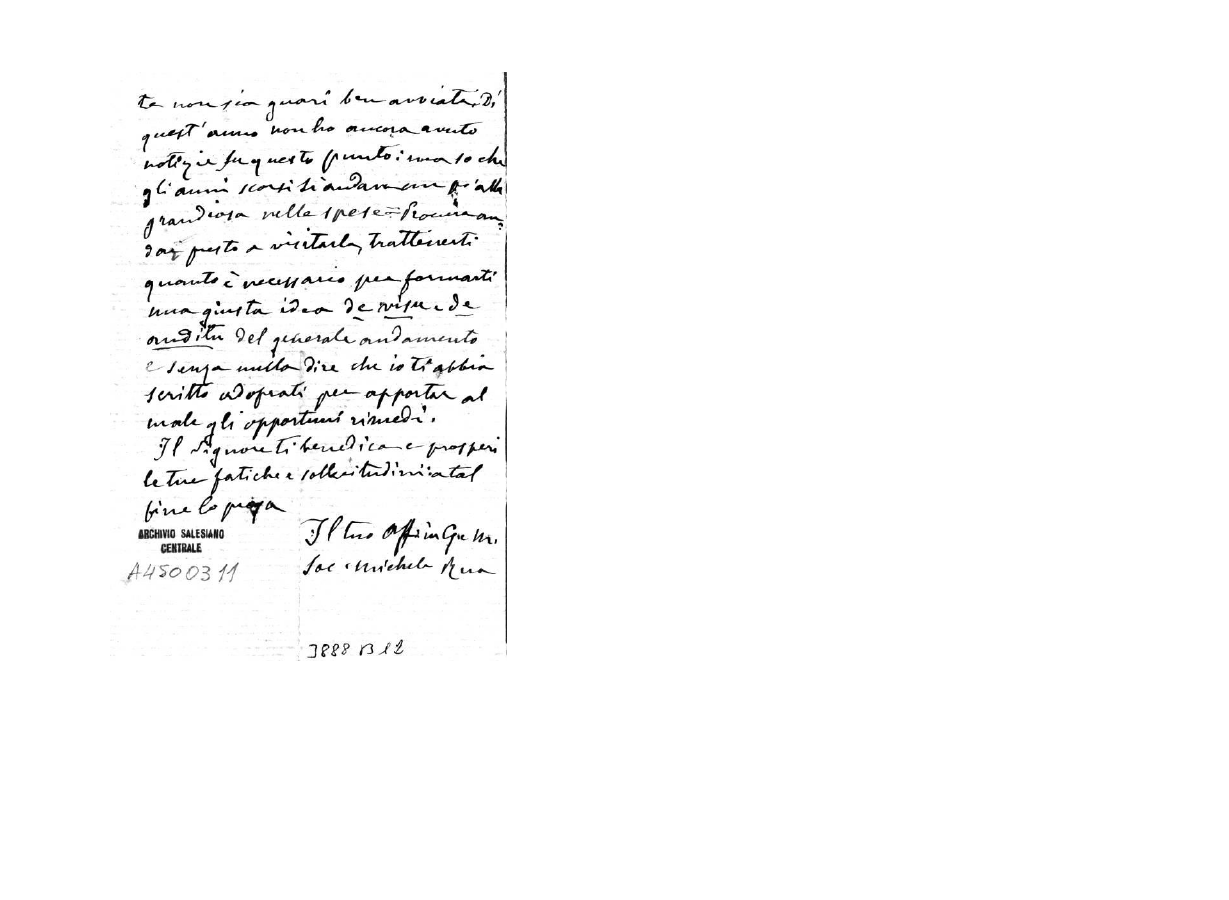 te non sia guari ben avviata. Di
quest'anno non ho ancora avuto
notizie su questo punto: ma so che
gli anni scorsi si andava un po' alla
grandiosa nelle spese = Procura an-
dar presto a visitarla, trattenerti
quanto è necessario per formarti
una giusta idea de visu e de
auditu del generale andamento
e senza nulla dire che io ti abbia
scritto adoprati per apportar al
male gli opportuni rimedi.
Il Signore ti benedica e prosperi
le tue fatiche e sollecitudini: a tal
fine lo prega
Il tuo Aff.mo in G. e M.
Sac. Michele Rua
ARCHIVIO SALESIANO
CENTRALE
A4500311
3888 B 12